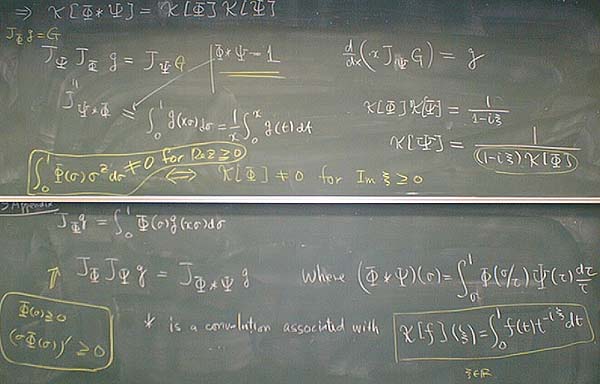 ⇒ K[Φ*Ψ] = K[Φ] K[Ψ]
J_Φ g = G
J_Ψ J_Φ g = J_Ψ G
Φ*Ψ = 1
d/dx (x J_Ψ G) = g
J_Ψ*Φ
∫_0^1 g(xσ)dσ = 1/x ∫_0^x g(t)dt
K[Φ] K[Ψ] = 1/(1-iξ)
K[Ψ] = 1/((1-iξ) K[Φ])
∫_0^1 Φ(σ)σ^z dσ ≠ 0 for Re z ≥ 0
⇔ K[Φ] ≠ 0 for Im ξ ≥ 0
Appendix
J_Φ g = ∫_0^1 Φ(σ)g(xσ)dσ
⇑ J_Φ J_Ψ g = J_Φ*Ψ g where (Φ*Ψ)(σ) = ∫_σ^1 Φ(σ/τ) Ψ(τ) dτ/τ
Φ(σ) ≥ 0
(σΦ(σ))' ≥ 0
* is a convolution associated with K[f](ξ) = ∫_0^1 f(t)t^{-iξ} dt
ξ∈R